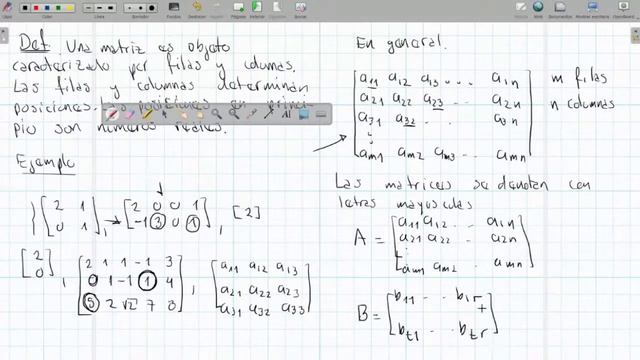 Lápiz
Color
Línea
Borrador
Fondo
Deshacer
Rehacer
Página
Anterior
Siguiente
Borrar
Insertar
Documentos
Mostrar escritorio
Open-Sankoré
Def. Una matriz es objeto
caracterizado por filas y columas.
Las filas y columnas determinan
posiciones. Las posiciones en princi-
pio son números reales.
Ejemplo
[2 1
0 1], [2 0 0 1
-1 3 0 1], [2]
[2
0], [2 1 1 -1 3
0 1 -1 1 4
5 2 √2 7 8], [a11 a12 a13
a21 a22 a23
a31 a32 a33]
En general.
[a11 a12 a13 ... a1n
a21 a22 a23 .. a2n
a31 a32 .. a3n
:
am1 am2 am3 .. amn]
m filas
n columnas
Las matrices se denotan con
letras mayusculas
A = [a11 a12 .. a1n
a21 a22 .. a2n
:
am1 am2 .. amn]
B = [b11 .. b1r
bt1 .. btr]